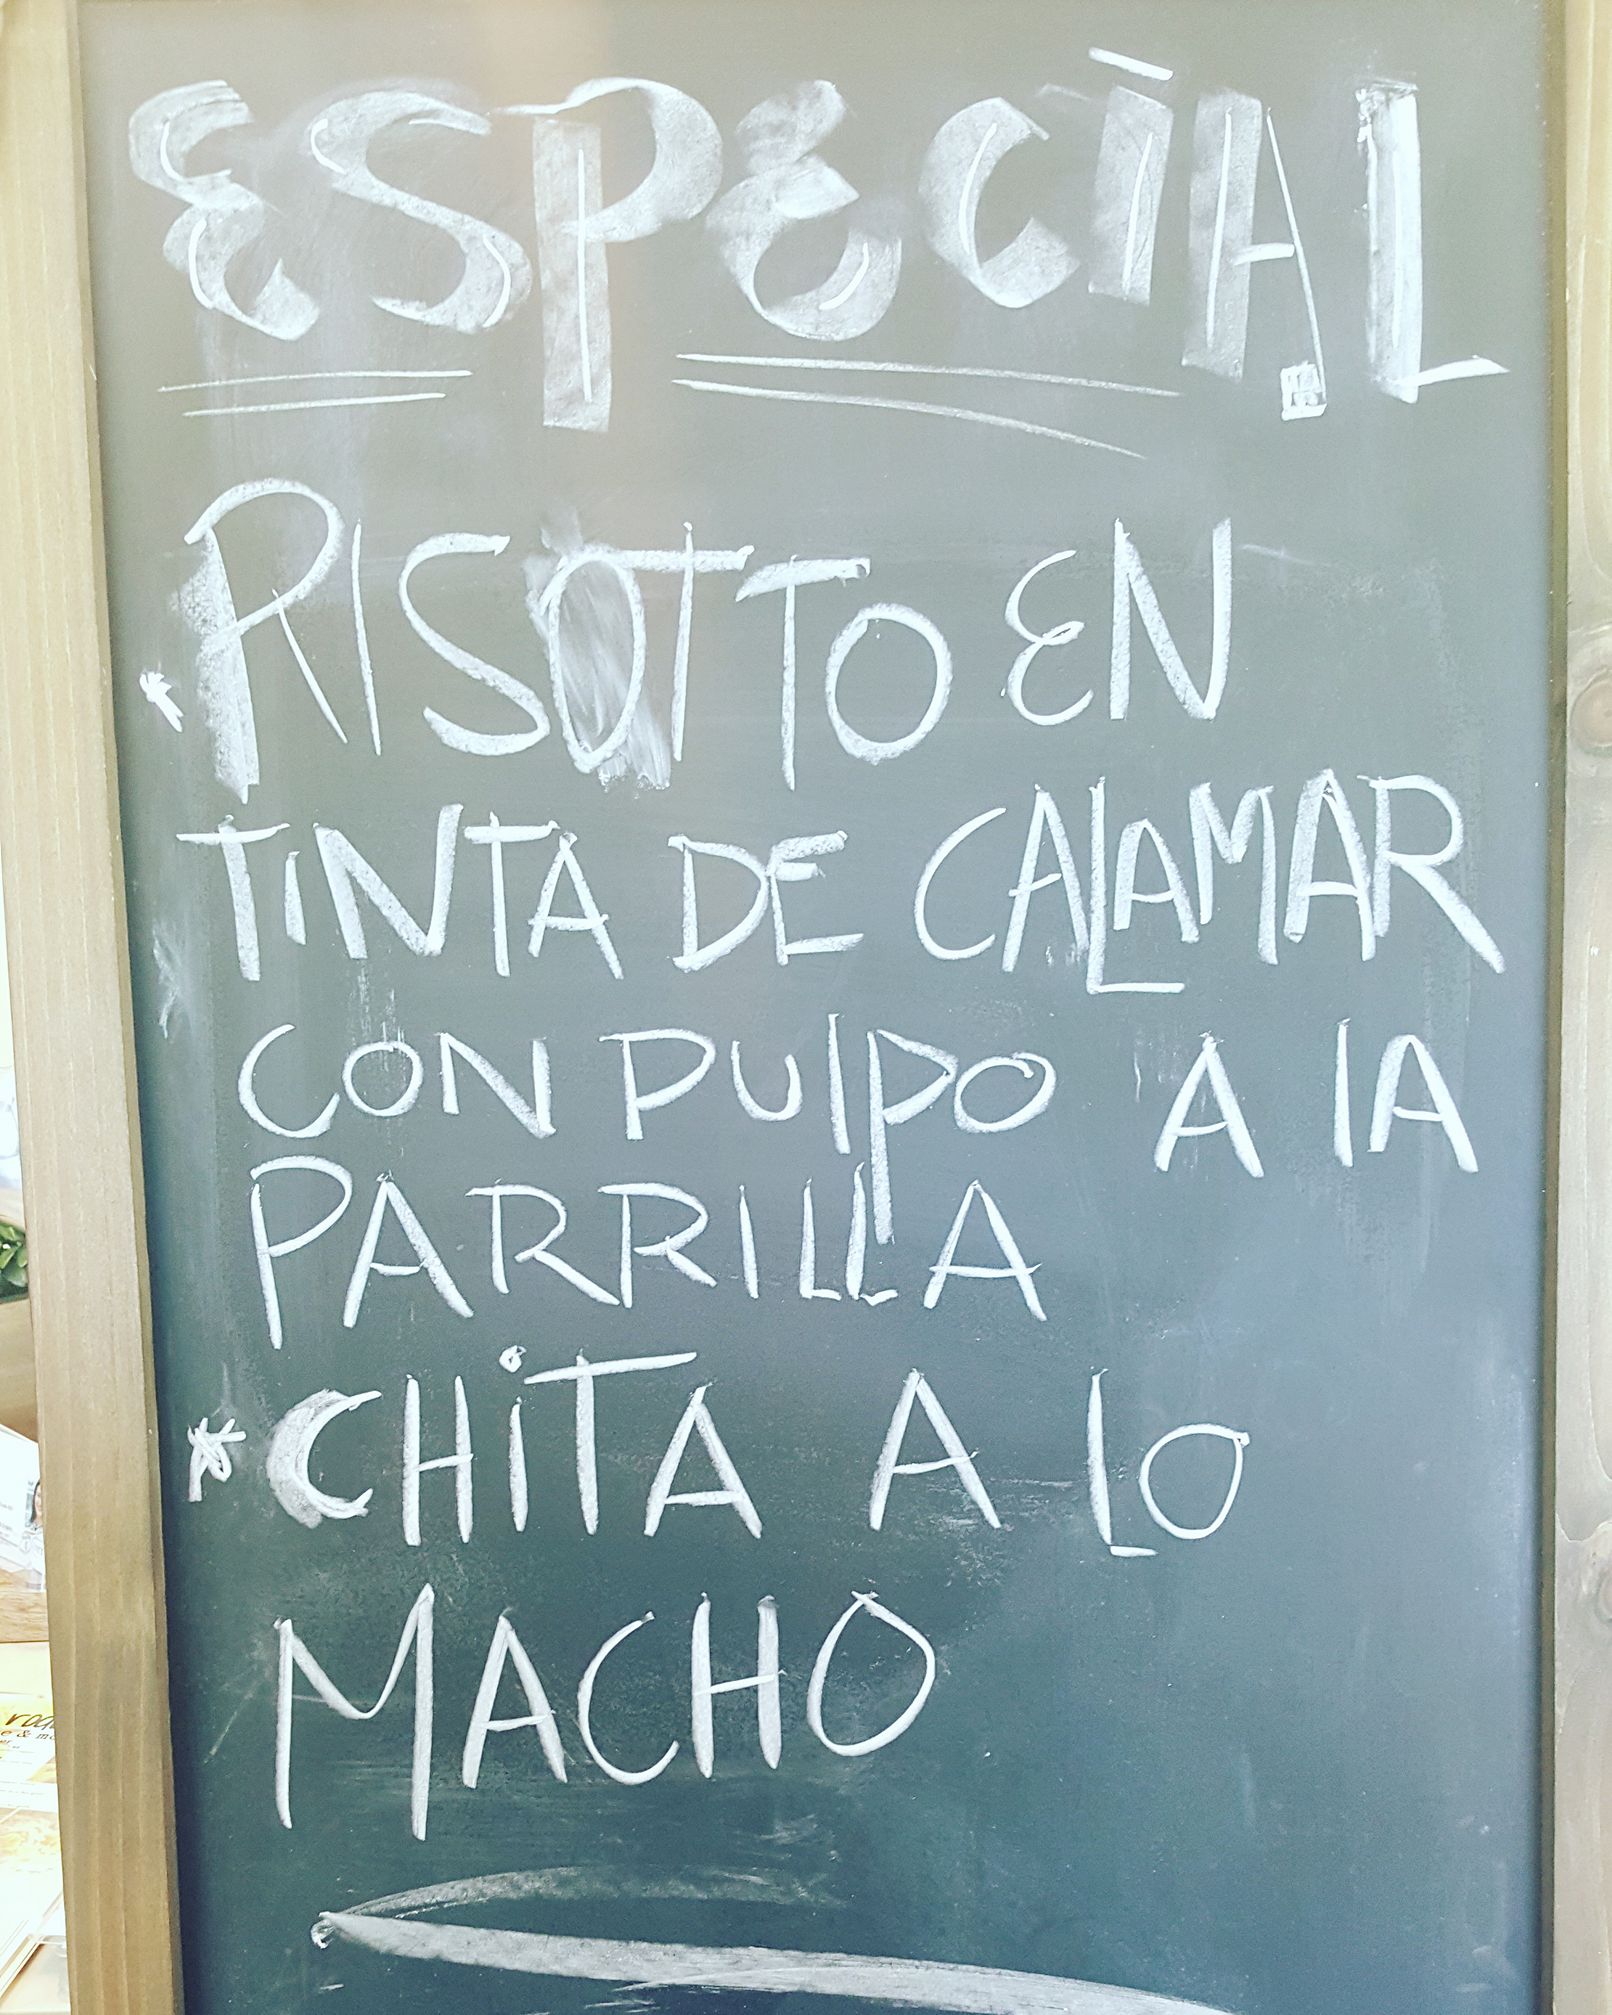 ESPECIAL
* RISOTTO EN
TINTA DE CALAMAR
CON PULPO A lA
PARRILLA
* CHiTA A LO
MACHO